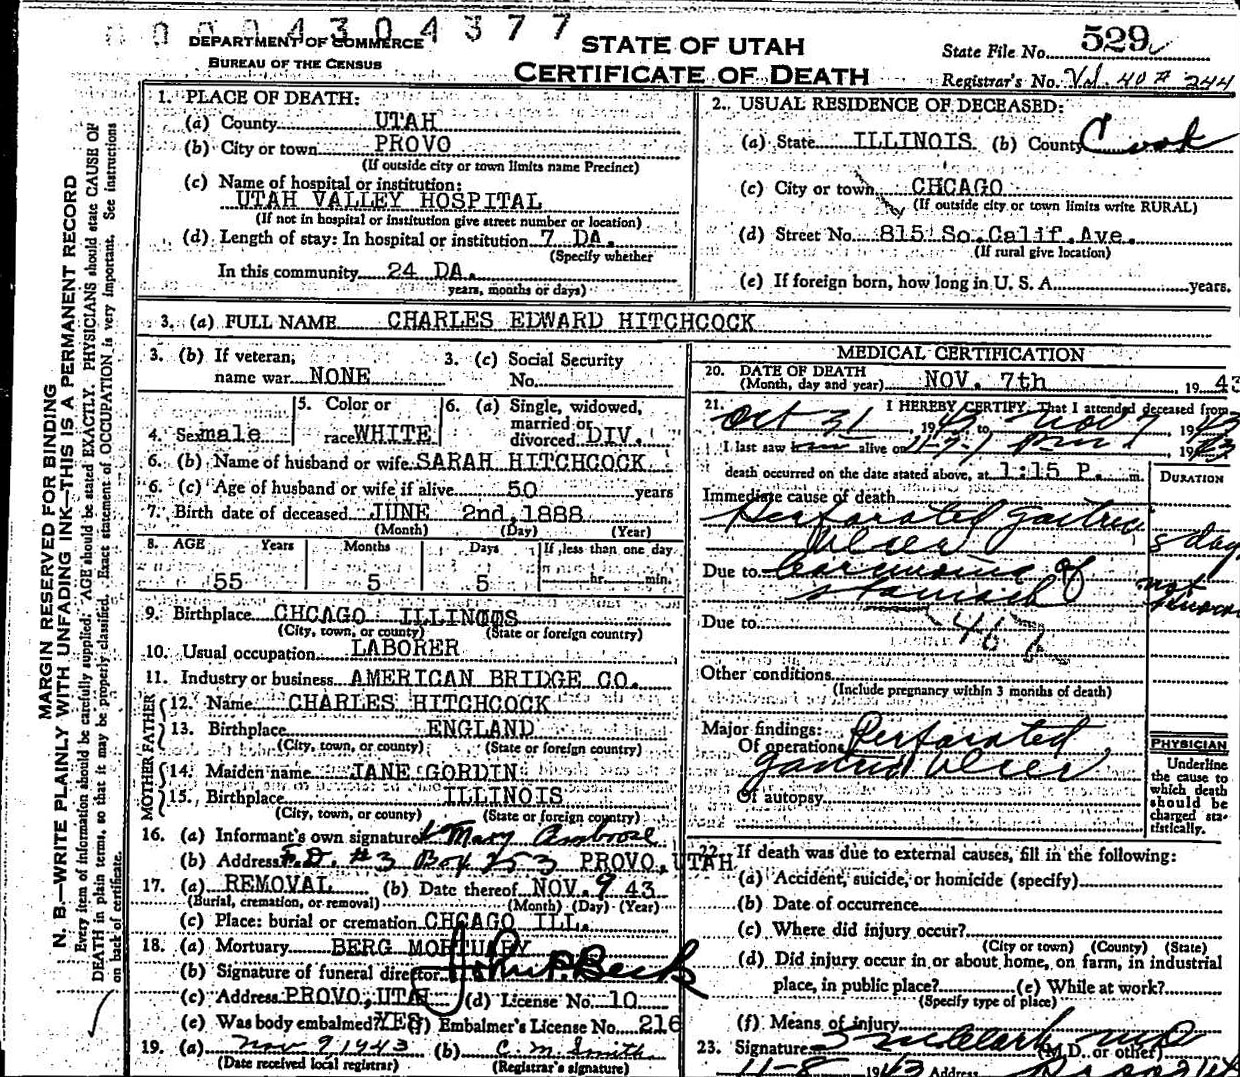 0004304377
DEPARTMENT OF COMMERCE
BUREAU OF THE CENSUS
STATE OF UTAH
CERTIFICATE OF DEATH
State File No. 529
Registrar's No. Vol. 40 # 244
MARGIN RESERVED FOR BINDING
N. B.—WRITE PLAINLY WITH UNFADING INK—THIS IS A PERMANENT RECORD
Every item of information should be carefully supplied. AGE should be stated EXACTLY. PHYSICIANS should state CAUSE OF
DEATH in plain terms, so that it may be properly classified. Exact statement of OCCUPATION is very important. See instructions
on back of certificate.
1. PLACE OF DEATH:
(a) County UTAH
(b) City or town PROVO
(If outside city or town limits name Precinct)
(c) Name of hospital or institution:
UTAH VALLEY HOSPITAL
(If not in hospital or institution give street number or location)
(d) Length of stay: In hospital or institution 7 DA.
(Specify whether
In this community 24 DA.
years, months or days)
2. USUAL RESIDENCE OF DECEASED:
(a) State ILLINOIS (b) County Cook
(c) City or town CHCAGO
(If outside city or town limits write RURAL)
(d) Street No. 815 So. Calif. Ave.
(If rural give location)
(e) If foreign born, how long in U. S. A. years.
3. (a) FULL NAME CHARLES EDWARD HITCHCOCK
3. (b) If veteran, name war NONE
3. (c) Social Security No.
4. Sex male
5. Color or race WHITE
6. (a) Single, widowed, married or divorced DIV.
6. (b) Name of husband or wife SARAH HITCHCOCK
6. (c) Age of husband or wife if alive 50 years
7. Birth date of deceased JUNE 2nd, 1888
(Month) (Day) (Year)
8. AGE Years Months Days If less than one day
55 5 5 hr. min.
9. Birthplace CHCAGO ILLINOIS
(City, town, or county) (State or foreign country)
10. Usual occupation LABORER
11. Industry or business AMERICAN BRIDGE CO.
FATHER
12. Name CHARLES HITCHCOCK
13. Birthplace ENGLAND
(City, town, or county) (State or foreign country)
MOTHER
14. Maiden name JANE GORDIN
15. Birthplace ILLINOIS
(City, town, or county) (State or foreign country)
16. (a) Informant's own signature Mary Ambrose
(b) Address #3 Box 253 PROVO, UTAH
17. (a) REMOVAL (b) Date thereof NOV. 9 43
(Burial, cremation, or removal) (Month) (Day) (Year)
(c) Place: burial or cremation CHCAGO ILL.
18. (a) Mortuary BERG MORTUARY
(b) Signature of funeral director
(c) Address PROVO, UTAH (d) License No. 10
(e) Was body embalmed? YES (f) Embalmer's License No. 216
19. (a) Nov 9, 1943 (b) C. M. Smith
(Date received local registrar) (Registrar's signature)
MEDICAL CERTIFICATION
20. DATE OF DEATH
(Month, day and year) NOV. 7th 1943
21. I HEREBY CERTIFY, That I attended deceased from
Oct 31, 1943 to Nov 7, 1943
I last saw him alive on 11-7-1 pm, 1943
death occurred on the date stated above, at 1:15 P. m.
DURATION
Immediate cause of death
Perforated gastric
ulcer
8 days
Due to Carcinoma of
stomach
not known
Due to 46 b
Other conditions
(Include pregnancy within 3 months of death)
Major findings:
Of operations Perforated
gastric ulcer
Of autopsy
PHYSICIAN
Underline
the cause to
which death
should be
charged sta-
tistically.
22. If death was due to external causes, fill in the following:
(a) Accident, suicide, or homicide (specify)
(b) Date of occurrence
(c) Where did injury occur?
(City or town) (County) (State)
(d) Did injury occur in or about home, on farm, in industrial
place, in public place? (e) While at work?
(Specify type of place)
(f) Means of injury
23. Signature Clark MD
(M.D. or other)
11-8 1943 Address